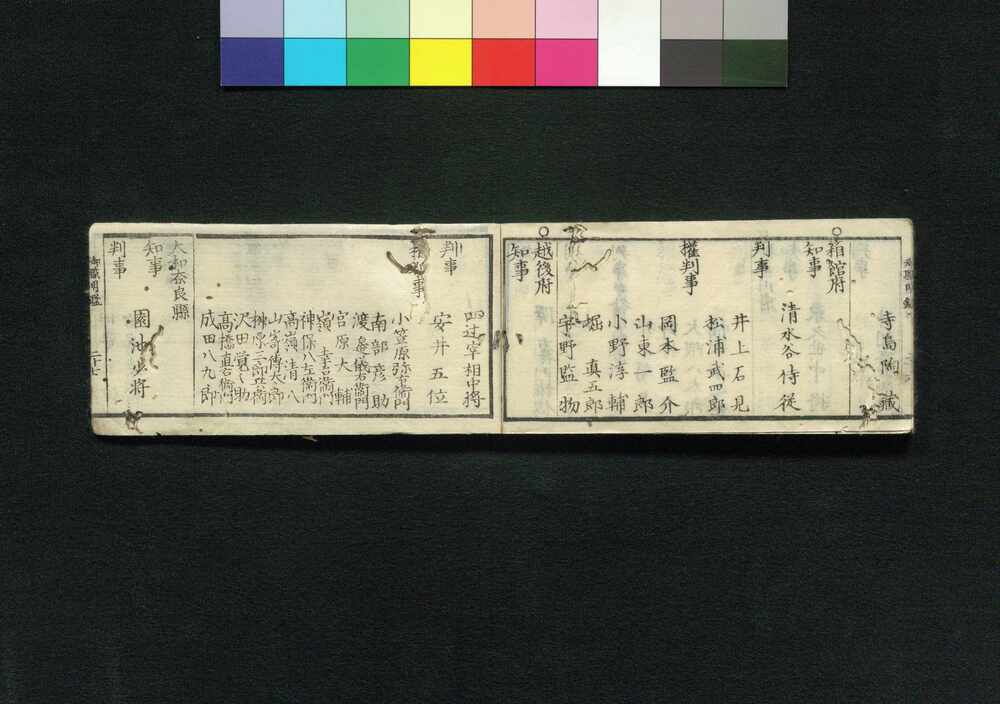 寺島陶藏
箱館府
知事
清水谷侍從
判事
井上石見
松浦武四郎
權判事
岡本監介
山東一郎
小野淳輔
堀真五郎
宇野監物
越後府
知事
四辻宰相中将
判事
安井五位
權判事
小笠原弥右衛門
南部彦助
渡邉儀右衛門
宮原大輔
嶺幸右衛門
神保八左衛門
高嶺清八
山嵜傳太郎
榊原三郎兵衛
沢田覚之助
高橋直右衛門
成田八九郎
大和奈良縣
知事
園池少将
判事